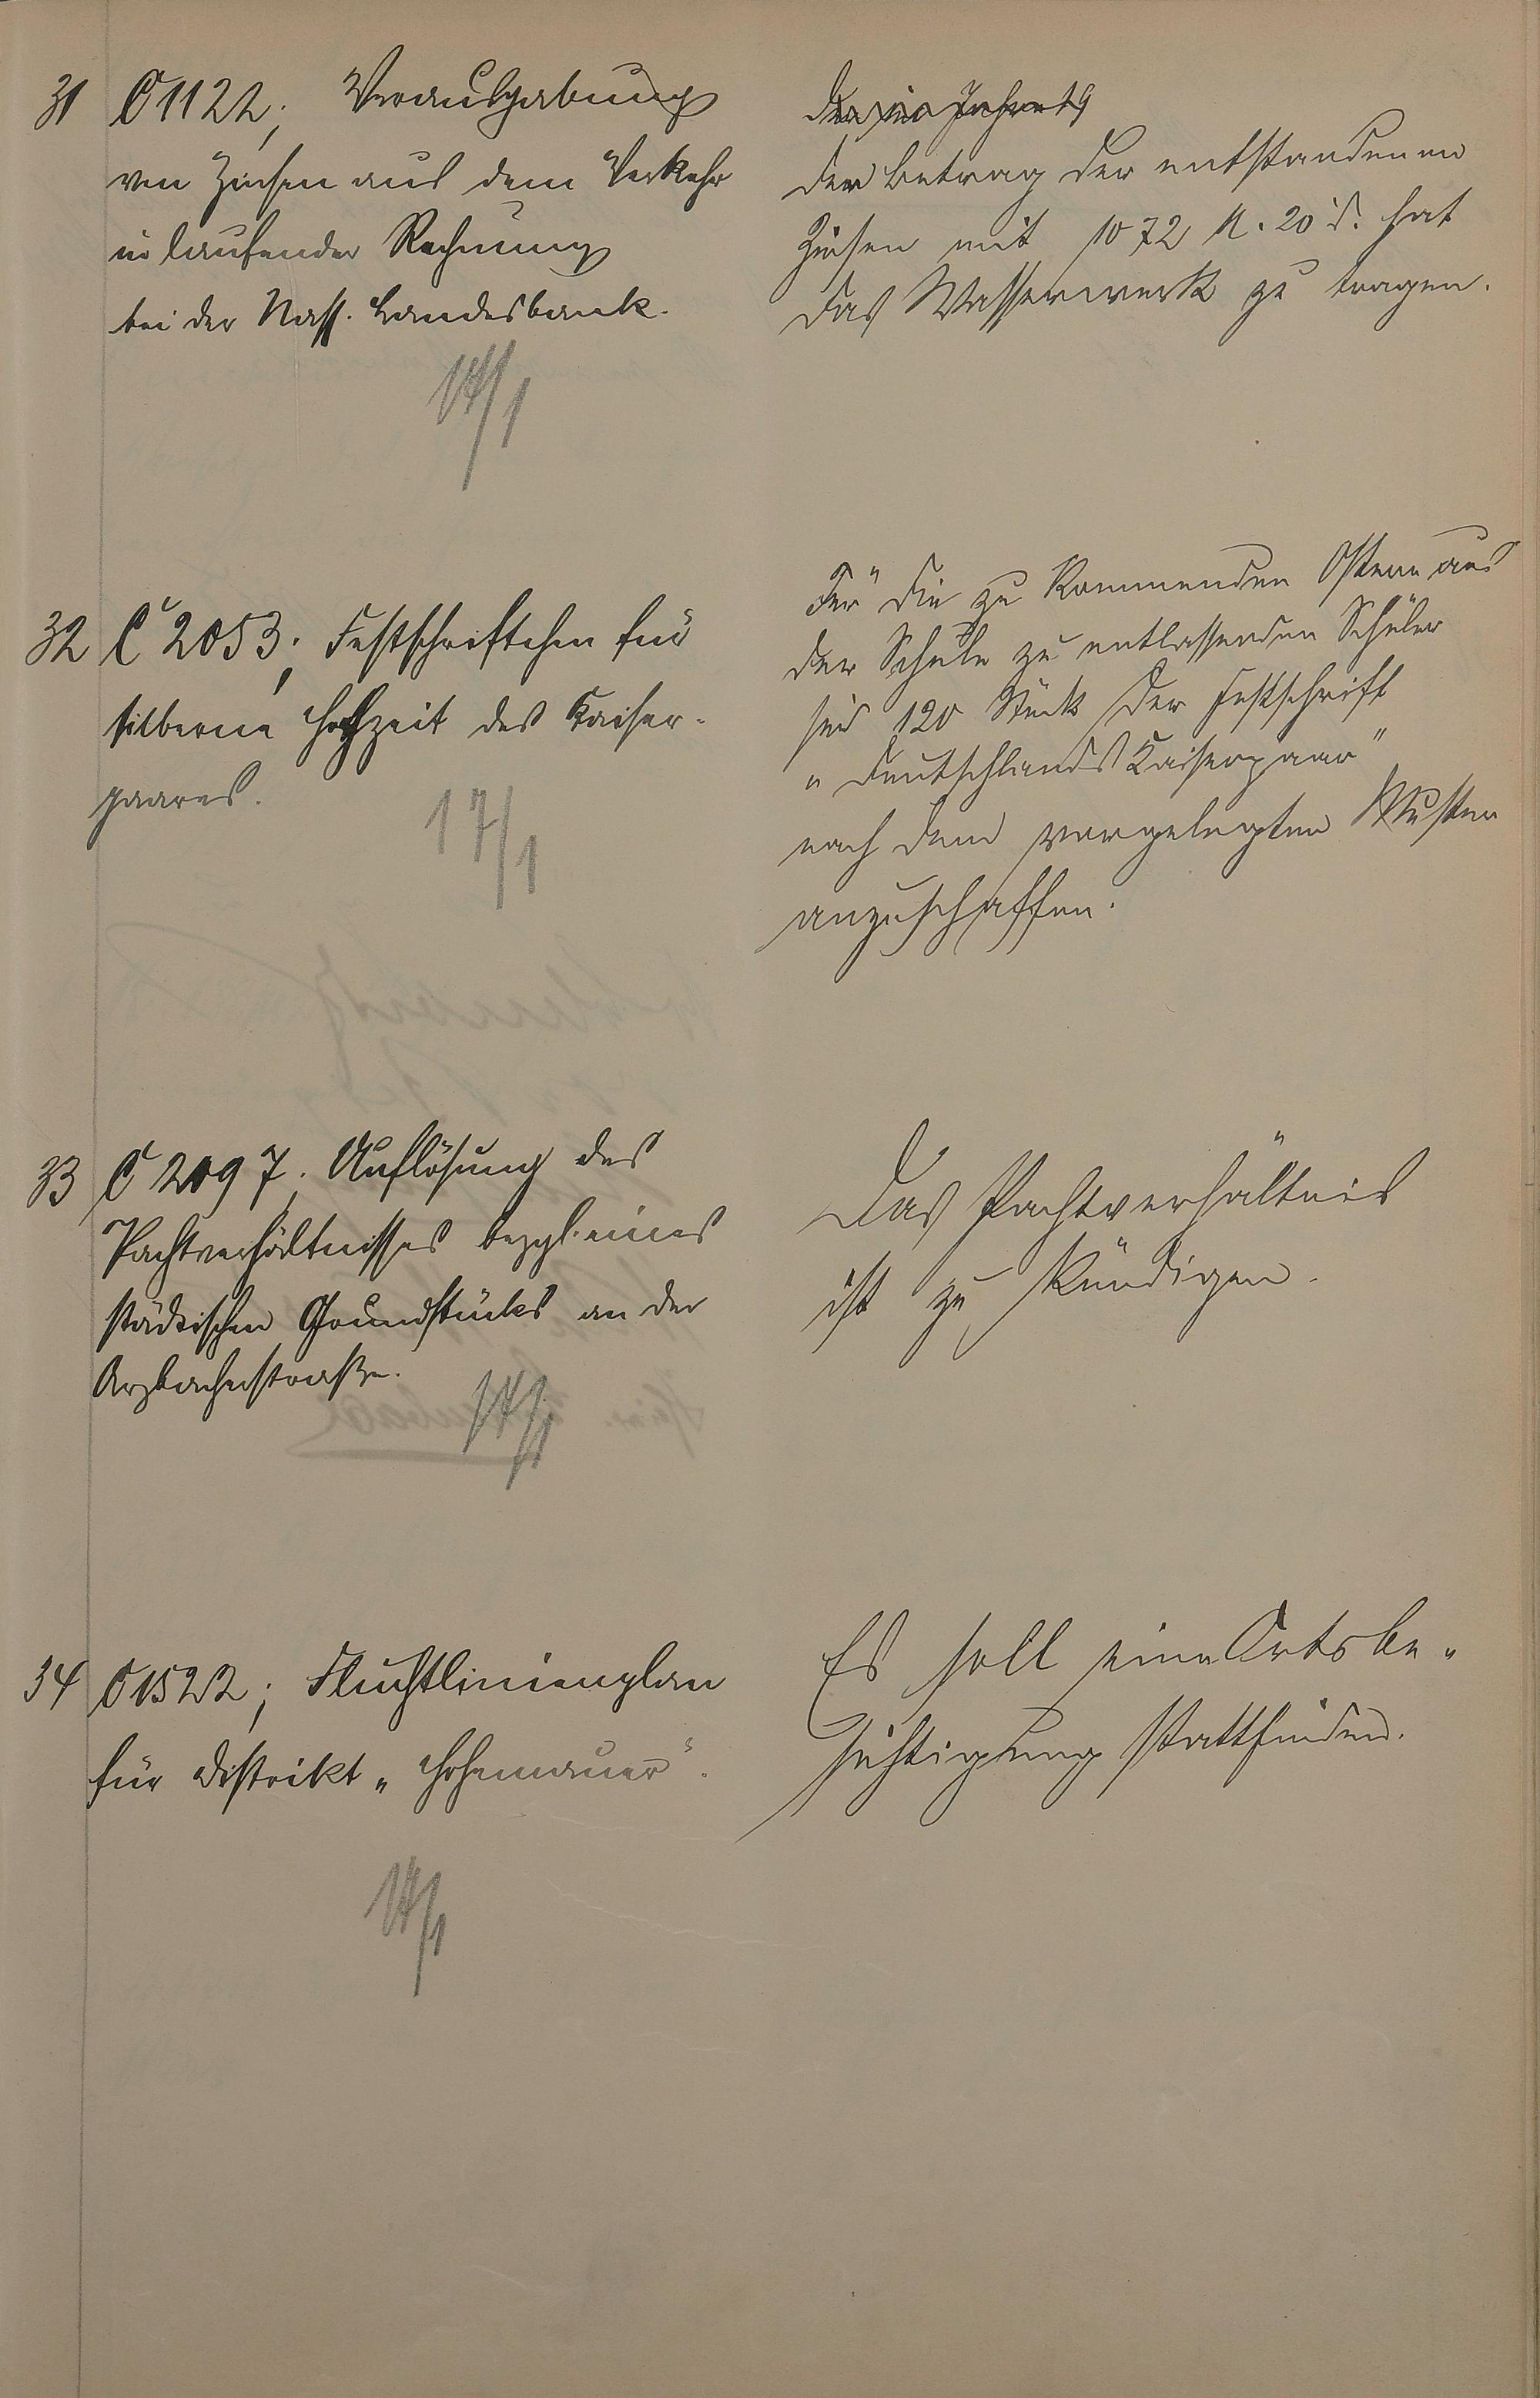 31 C 1122; Verausgabung
von Zinsen aus dem Verkehr
in laufender Rechnung
bei der Nass. Landesbank.
14/1
Der Betrag der entstandenen
Zinsen mit 1072 M. 20 d. hat
das Wasserwerk zu tragen.
32 C 2053; Festschriftchen für
silberne Hochzeit des Kaiser-
paares.
17/1
Für die zu kommenden Ostern aus
der Schule zu entlassenden Schüler
sind 120 Stück der Festschrift
„Deutschlands Kaiserpaar"
nach dem vorgelegten Muster
anzuschaffen.
33 C 2097. Auflösung des
Pachtverhältnisses bezgl. eines
städtischen Grundstücks an der
Arzbacherstraße.
14/1
Das Pachtverhältnis
ist zu kündigen.
34 C 1522; Fluchtlinienplan
für Distrikt „Hohemauer".
14/1
Es soll eine Ortsbe-
sichtigung stattfinden.